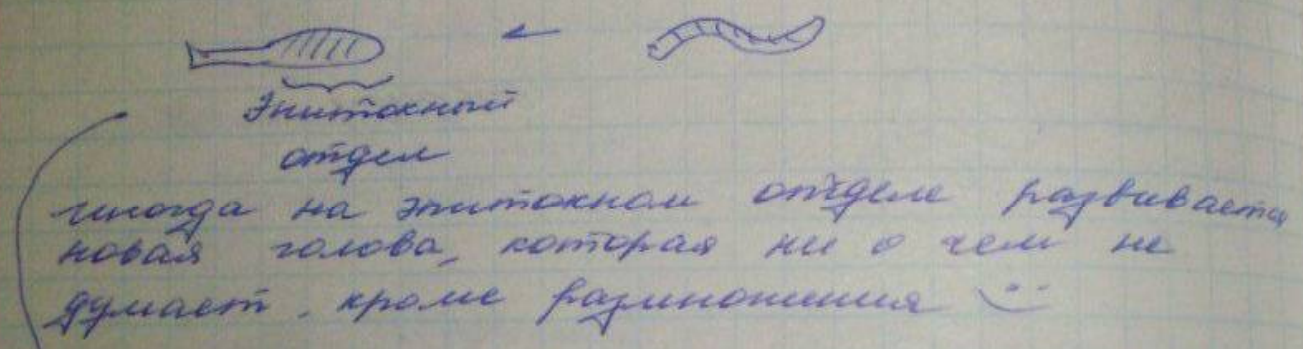 Эпитокный
отдел
иногда на эпитокном отделе развивается
новая голова, которая ни о чем не
думает, кроме размножения